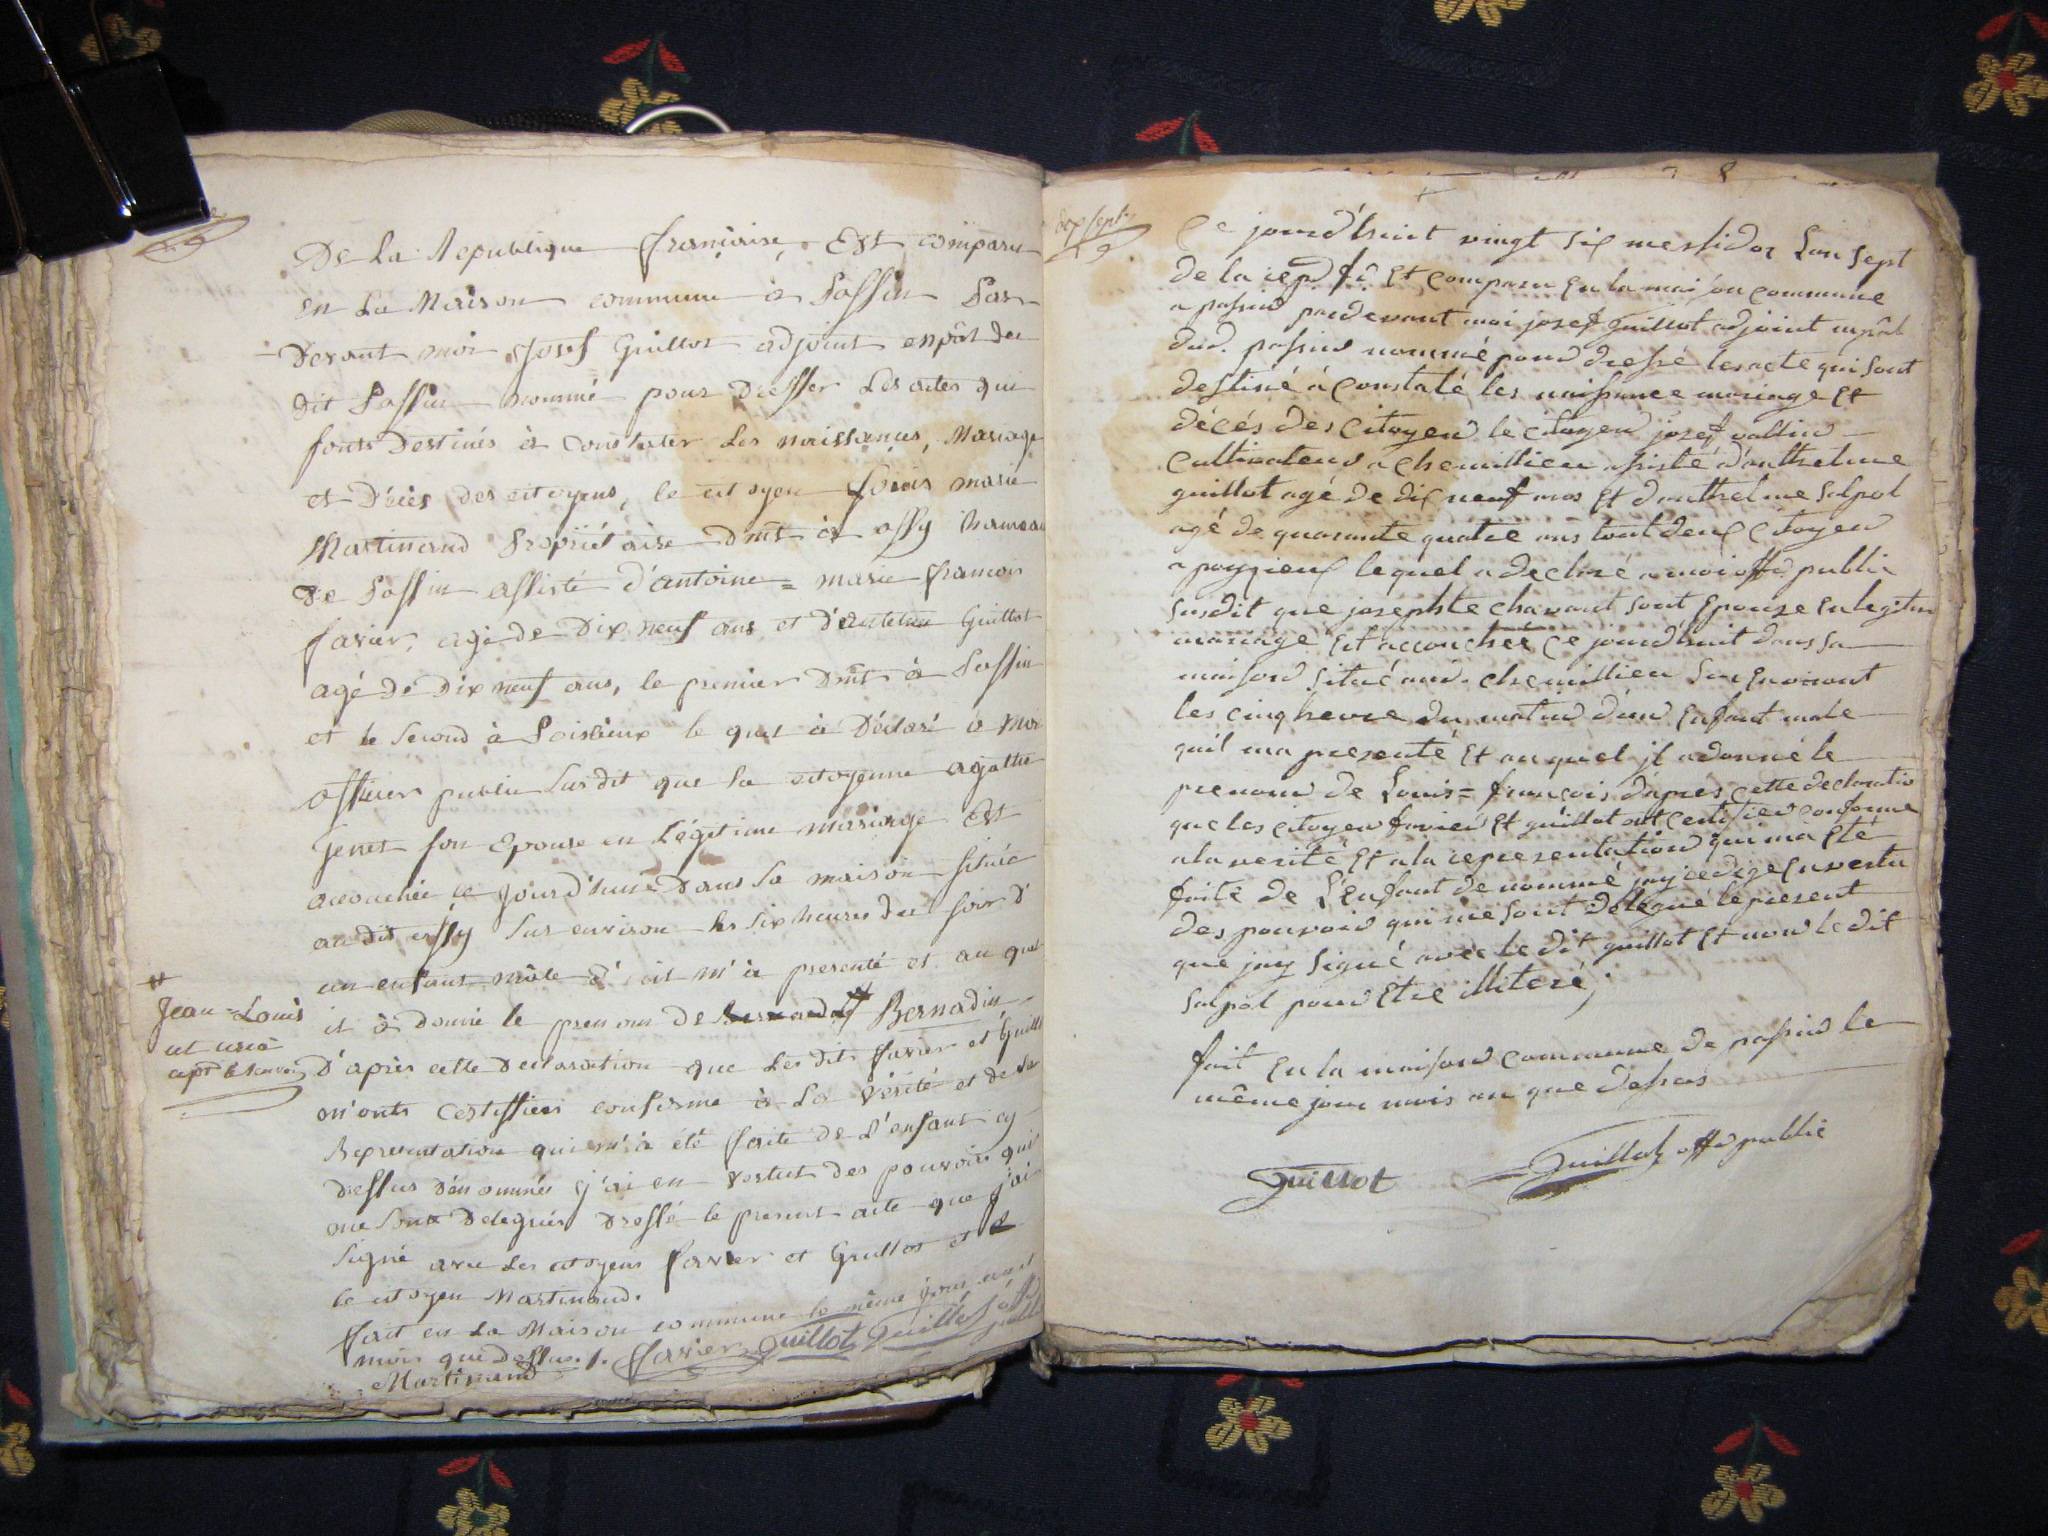 De La Republique française, Est comparu
en La Maison commune à Passin Par
Devant moi Josef Guillot adjoint
dit Passin nommé pour Dresser Les actes qui
sonts Destinés à Constater Les naissances, Mariage
et Décès des citoyens, le citoyen Louis marie
Martinand Propriétaire à assy hameau
De Passin assisté d'antoine = marie francois
favier, agé de Dix neuf ans et Guillot
agé de Dix neuf ans, le premier à Passin
et le second à le quel à Déclaré à Moi
officier public susdit que La citoyenne agathe
Jenet son Epouse en Légitime mariage Est
acouchée ce jourd'huit Dans Sa maison située
au dit assy sur environ les six heures du soir d'
un enfant mâle m'à presenté et au quel
Jean=Louis
il à donné le prenom de Bernadin
D'après cette Declaration que Les dits favier et Guill
m'onts certiffiers conforme à La Vérité et de la
Representation qui m'à été faite de L'enfant cy
Dessus dénommée j'ai en vertut des pouvoirs qui
me sont Delegués Dressé le present acte que j'ai
signé avec Les citoyens favier et Guillot et
le citoyen Martinand.
fait en La Maison commune le même jour
mois que Dessus ./. favier Guillot Guillot
Martinand
dix sept
Ce jourd'huit vingt six messidor Lan sept
de la rep. f. Et comparu En la maison commune
a passin pardevant moi josef guillot adjoint
dud. passin nommé pour dressé les acte qui sont
destiné à Constaté les naissance mariage Et
décés des Citoyen le citoyen josef vallin
cultivateur a chemillieu assisté d'anthelme
guillot agé de dix neuf ans Et d'anthelme salpol
agé de quarante quatre ans tout deux Citoyen
a poyzieux lequel a declaré a moi off. public
susdit que josephte chavant sont Epouze En legitim
mariage Est accouchée Ce jourdhuit dans sa
maison situé aud. chemillieu sur Environt
les cinq heure du matin d'un Enfant male
quil ma presenté Et au quel jl a donné le
prenom de Louis=francois d'après Cette declaratio
que les citoyen favier Et guillot ont Certifier conforme
a la verité Et a la representation qui ma Eté
faite de L'Enfant de nommé jay redigé En vertu
des pouvoir qui me sont délégué le present
que jay signé avec le dit guillot Et non le dit
salpol pour Etre illiteré;
fait En la maison commune de passin le
même jour mois an que dessus
Guillot Guillot off. public